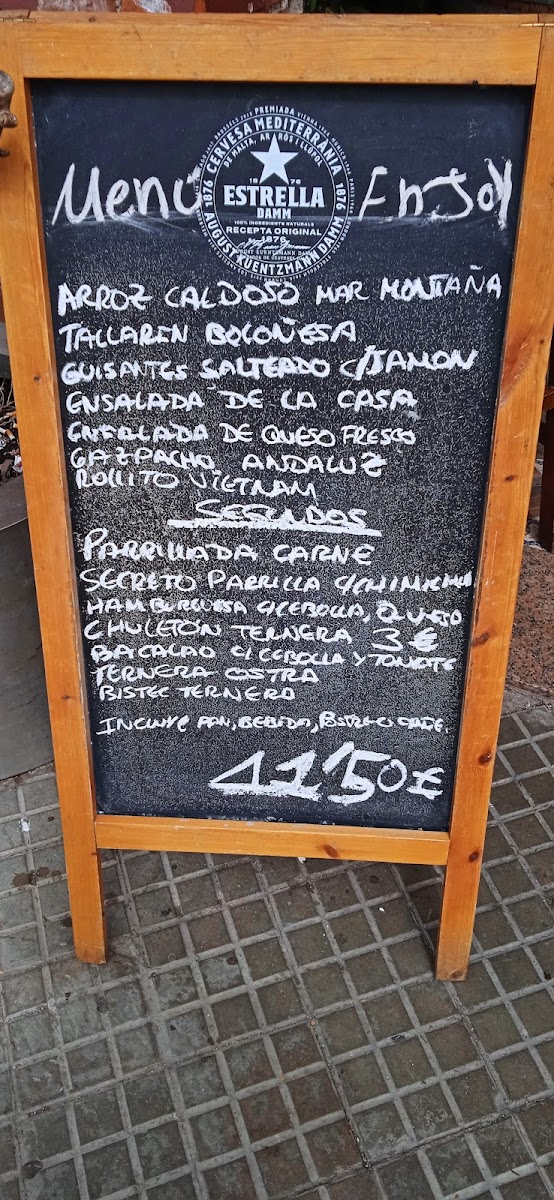 Menú Enjoy
PREMIADA
CERVESA MEDITERRÀNIA
DE MALTA, ARRÒS I LLÚPOL
1876
ESTRELLA
DAMM
100% INGREDIENTS NATURALS
RECEPTA ORIGINAL
1876
AUGUST KUENTZMANN DAMM
1876
ARROZ CALDOSO MAR MONTAÑA
TALLAREN BOLOÑESA
GUISANTES SALTEADO C/JAMON
ENSALADA DE LA CASA
ENSALADA DE QUESO FRESCO
GAZPACHO ANDALUZ
ROLLITO VIETNAM
SEGUNDOS
PARRILLADA CARNE
SECRETO PARRILLA
HAMBURGUESA C/CEBOLLA, QUESO
CHULETÓN TERNERA 3€
BACALAO C/CEBOLLA Y TOMATE
TERNERA OSTRA
BISTEC TERNERA
INCLUYE PAN, BEBIDA, POSTRE O CAFE.
11'50€